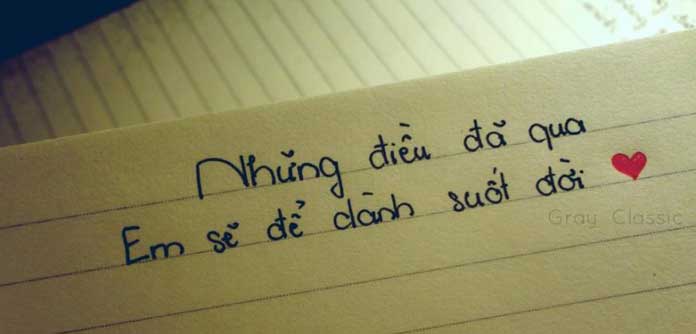 Những điều đã qua
Em sẽ để dành suốt đời
Gray Classic